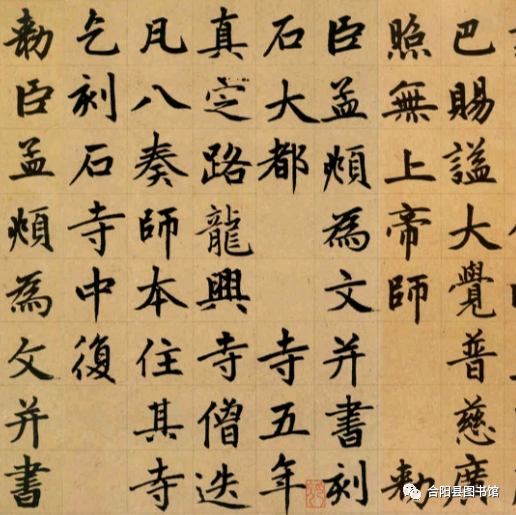 巴賜謚大覺普慈廣
照無上帝師　敕
臣孟頫為文并書刻
石大都　寺五年
真定路龍興寺僧迭
凡八奏師本住其寺
乞刻石寺中復
敕臣孟頫為文并書
合阳县图书馆